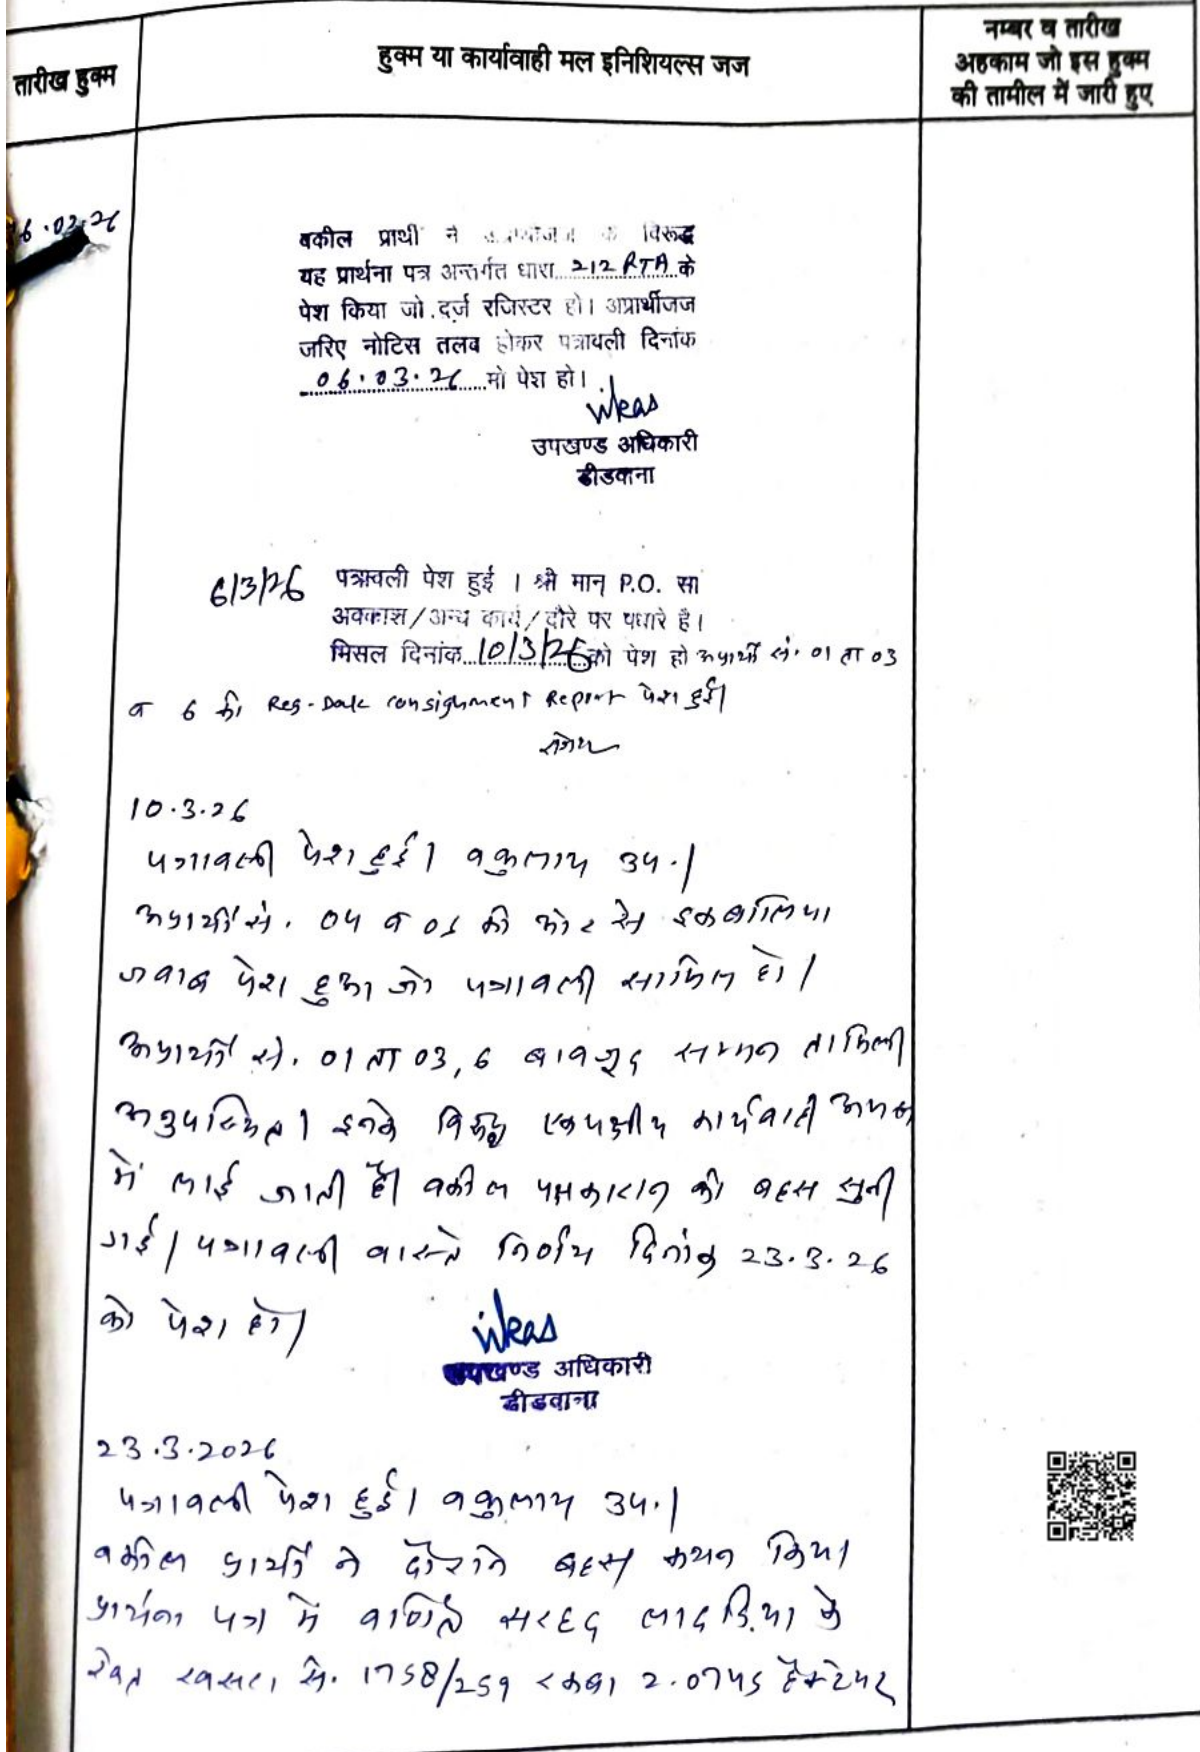 तारीख हुक्म
हुक्म या कार्यावाही मल इनिशियल्स जज
नम्बर व तारीख
अहकाम जो इस हुक्म
की तामील में जारी हुए
6.02.26
वकील प्रार्थी ने के विरूद्ध
यह प्रार्थना पत्र अन्तर्गत धारा 212 RTA के
पेश किया जो दर्ज रजिस्टर हो। अप्रार्थीजज
जरिए नोटिस तलब होकर पत्रावली दिनांक
06.03.26 मो पेश हो।
उपखण्ड अधिकारी
डीडवाना
6/3/26 पत्रावली पेश हुई । श्री मान् P.O. सा
अवकाश/अन्य कार्य/दौरे पर पधारे है।
मिसल दिनांक 10/3/26 को पेश हो अप्रार्थी सं. 01 ता 03
व 6 की Reg-Dak consignment Report पेश हुई।
10.3.26
पत्रावली पेश हुई। वकुलाय उप.।
अप्रार्थी सं. 04 व 05 की ओर से इकबालिया
जवाब पेश हुआ जो पत्रावली सामिल हो।
अप्रार्थी सं. 01 ता 03, 6 बावजूद सम्मन तामिली
अनुपस्थित। इनके विरूद्ध एकपक्षीय कार्यवाही अमल
में लाई जाती है। वकील पक्षकारान की बहस सुनी
गई। पत्रावली वास्ते निर्णय दिनांक 23.3.26
को पेश हो।
उपखण्ड अधिकारी
डीडवाना
23.3.2026
पत्रावली पेश हुई। वकुलाय उप.।
वकील प्रार्थी ने दौराने बहस कथन किया
प्रार्थना पत्र में वर्णित सरहद लादडिया के
खेत खसरा सं. 1758/259 रकबा 2.0745 हैक्टेयर